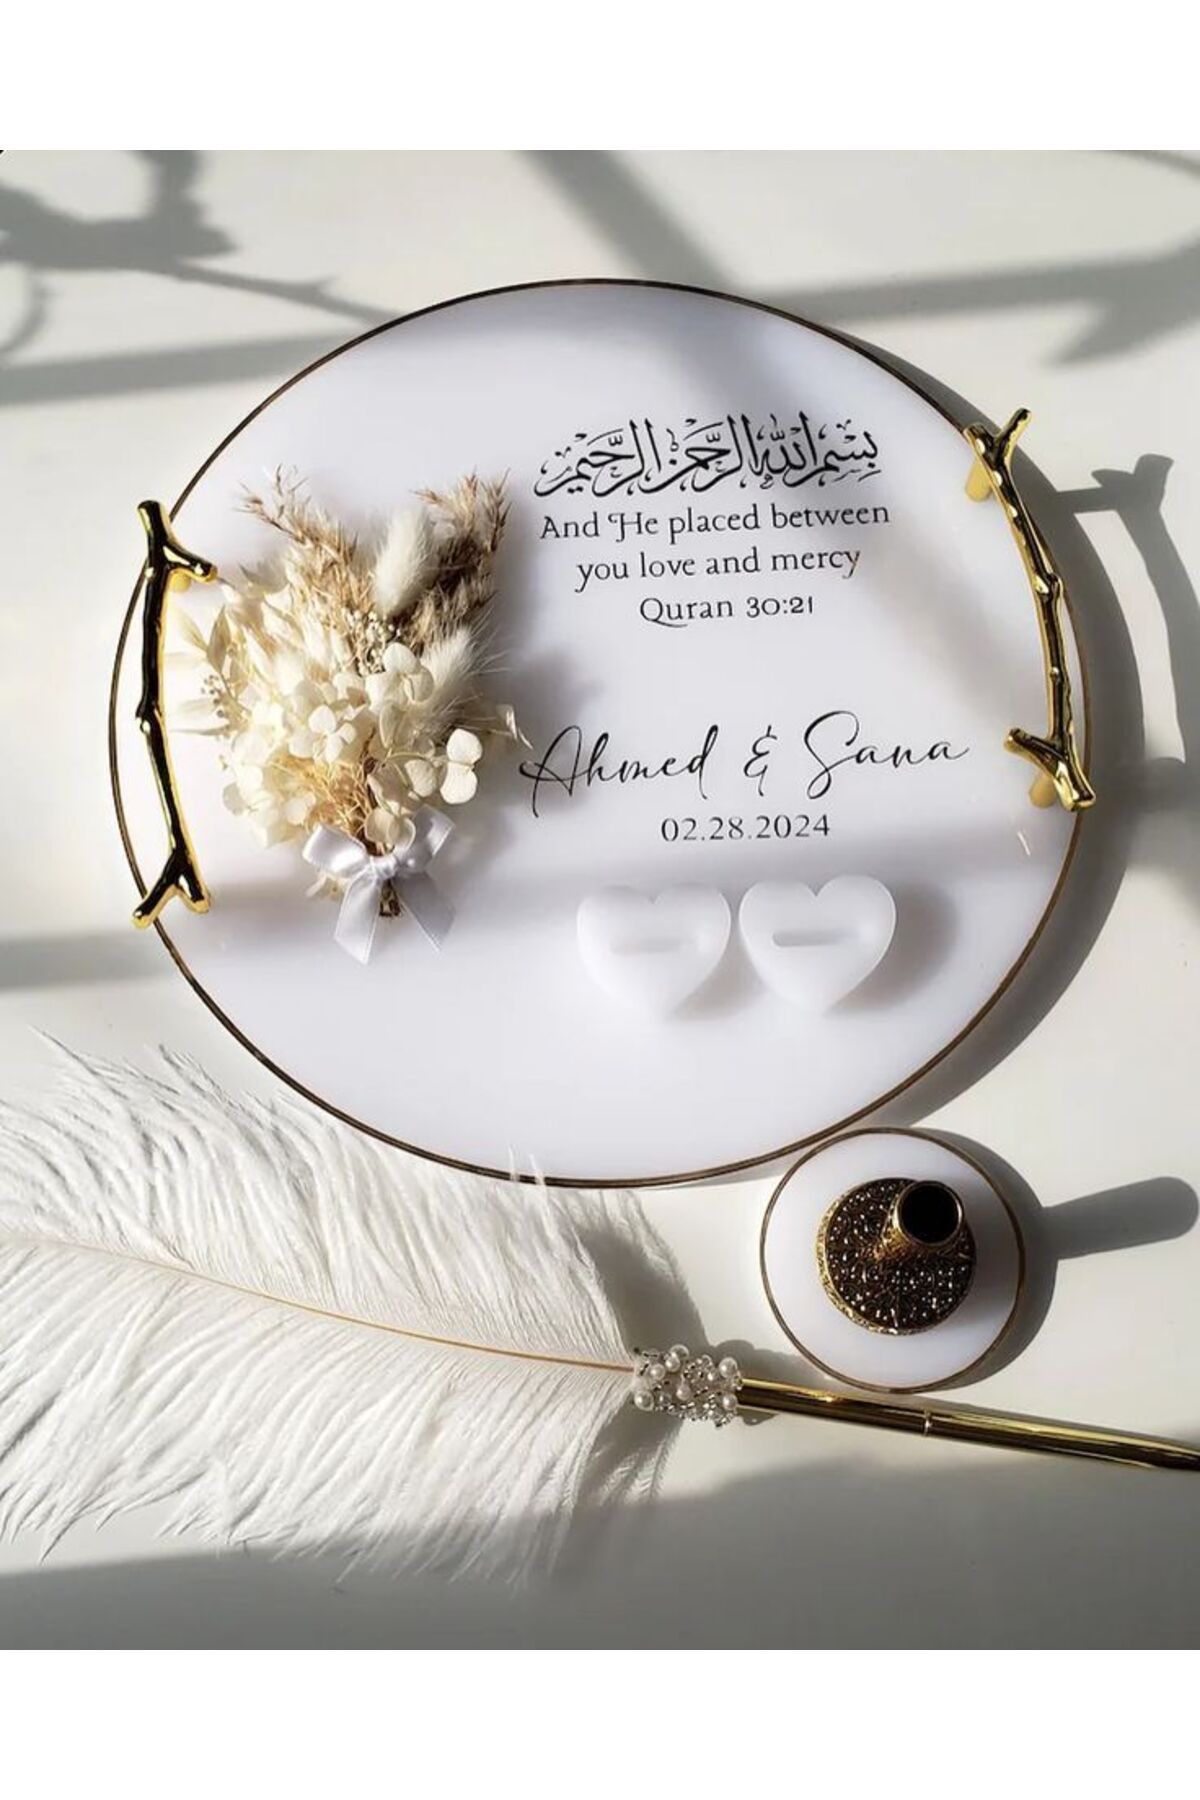 بسم الله الرحمن الرحيم
And He placed between
you love and mercy
Quran 30:21
Ahmed & Sana
02.28.2024